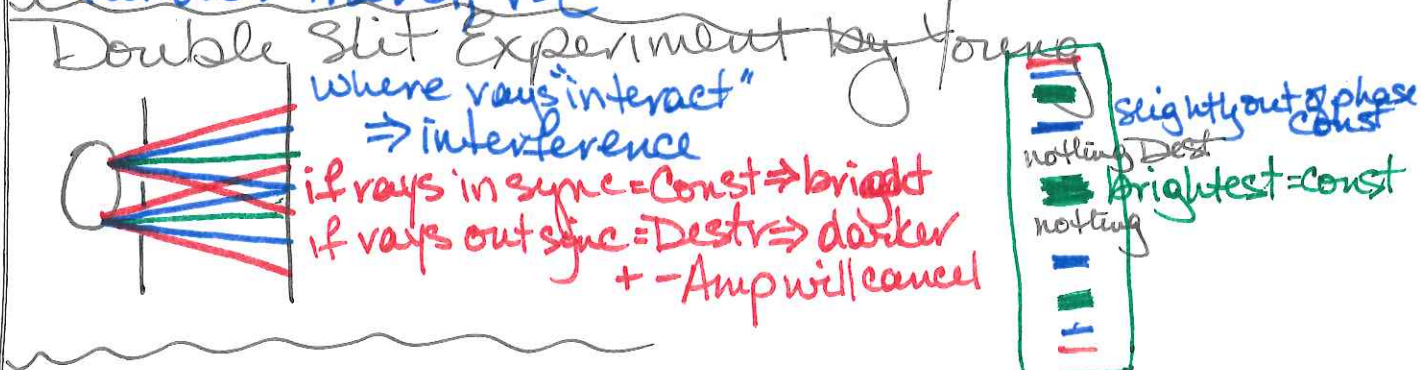 Double Slit Experiment by Young
where rays "interact"
⇒ interference
if rays in sync = Const ⇒ bright
if rays out sync = Destr ⇒ darker
+ - Amp will cancel
slightly out of phase
const
nothing Dest
brightest = const
nothing